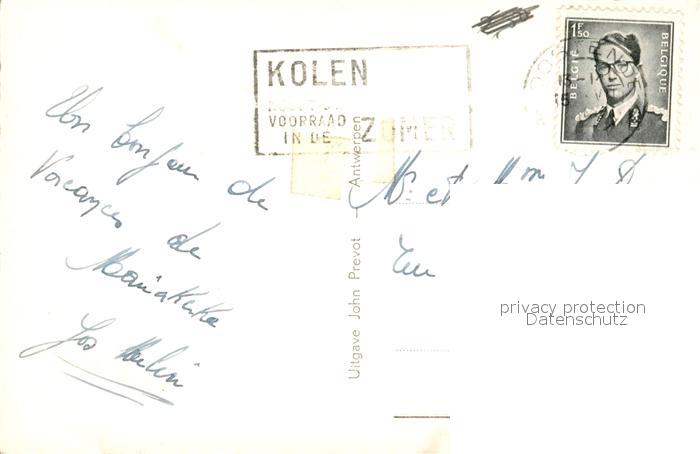 KOLEN
VOORRAAD
IN DE ZOMER
1F50
BELGIË
BELGIQUE
Un bonjour de
Vacances de
Mariakerke
Jos
Uitgave John Prevot — Antwerpen
M. et Mme J. D
privacy protection
Datenschutz